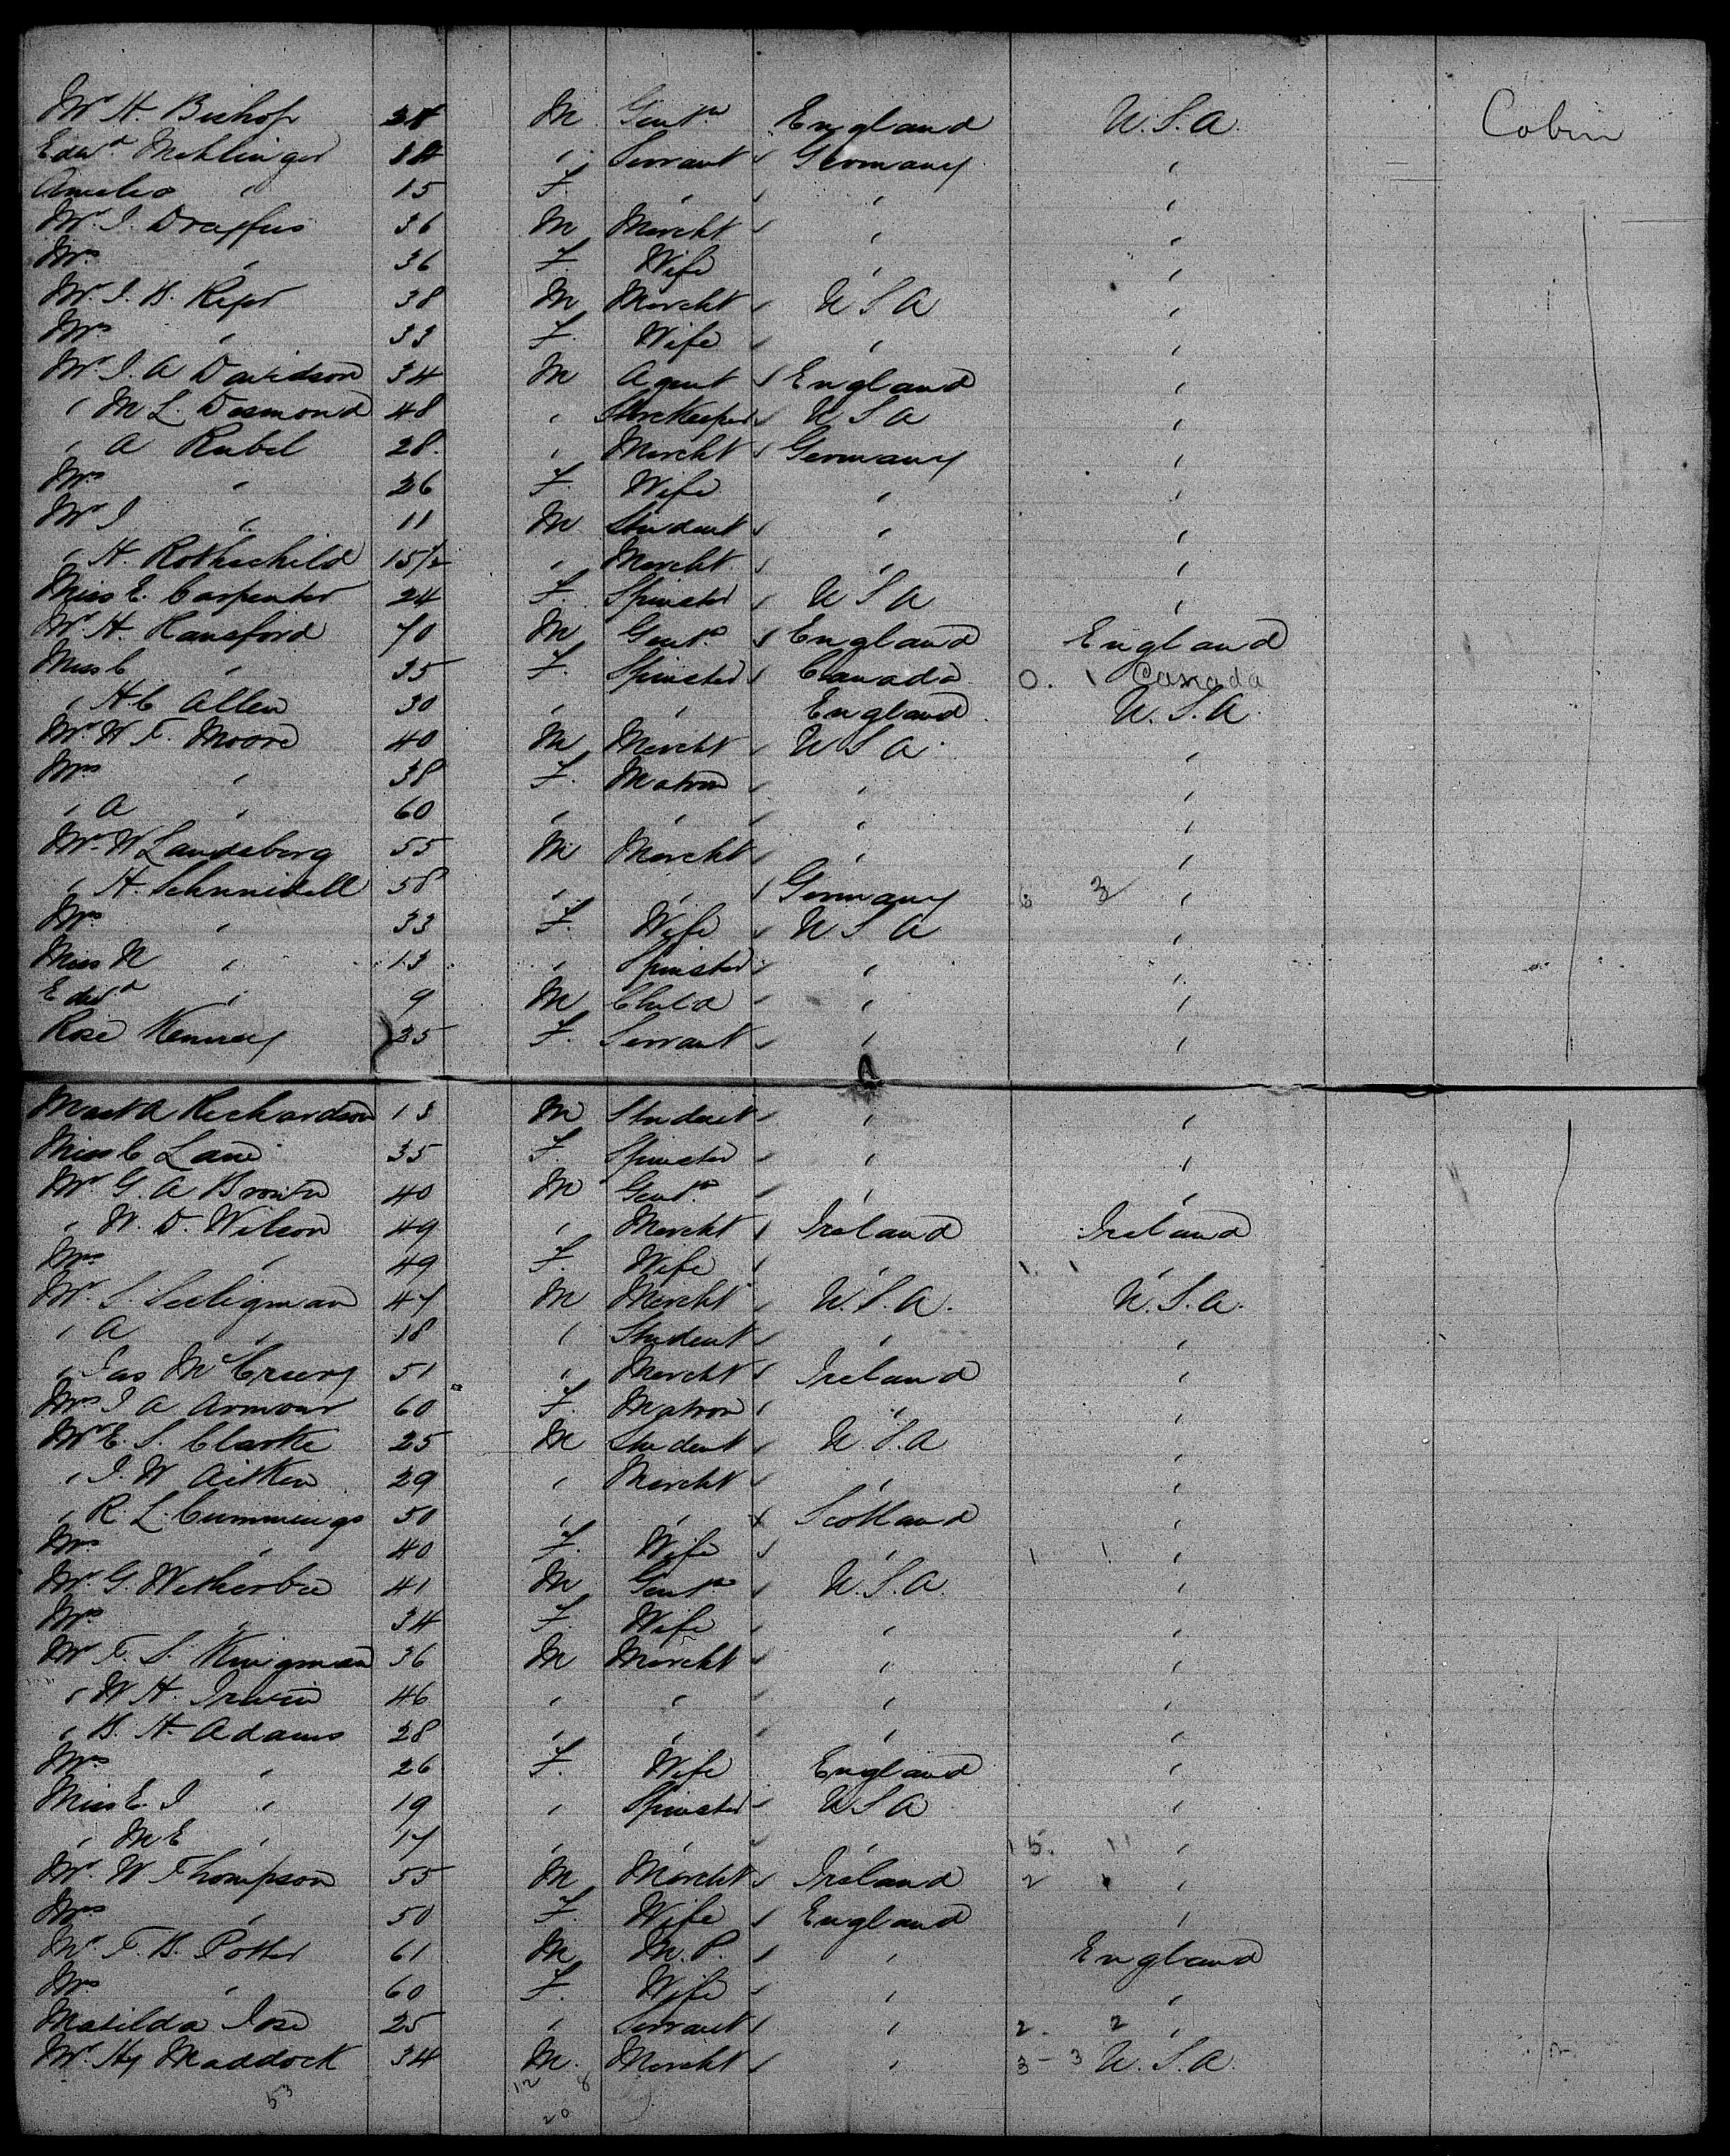 Mr H. Bishop 28 M Gentn England U.S.A. Cabin
Edwd Mehlinger 18 " Servant Germany "
Amelia " 15 F. " " "
Mr J. Draffus 36 M Mercht " "
Mrs " 36 F. Wife " "
Mr. J. B. 38 M Mercht U S A "
Mrs " 33 F. Wife " "
Mr J. A Davidson 34 M Agent England "
" M L. Desmond 48 " StoreKeeper U S A "
" A Rubel 28. " Mercht Germany "
Mrs " 26 F. Wife " "
Mr J " 11 M Student " "
" H. Rothschild 15/2 " Mercht " "
Miss E. Carpenter 24 F. Spinster U S A "
Mr H. Ransford 70 M Gentn England England
Miss C " 35 F. Spinster Canada 0. 1 Canada
" H C Allen 30 " " England U.S.A.
Mr W F. Moore 40 M Mercht U S A "
Mrs " 38 F. Matron " "
" A " 60 " " " "
Mr W Landsberg 55 M Mercht " "
" H. Schnnidell 58 " " Germany 6 3 "
Mrs " 33 F. Wife U S A "
Miss N " 13 " Spinster " "
Edwd " 9 M Child " "
Rose Kenney 35 F. Servant " "
Mast A Richardson 13 M Student " "
Miss C Lane 35 F. Spinster " "
Mr G. A Brown 40 M Gentn " "
" W. D. Wilson 49 " Mercht Ireland Ireland
Mrs " 49 F. Wife " 1 1 "
Mr. S. Seeligman 47 M Mercht U.S.A. U.S.A.
" A " 18 " Student " "
" Jas McCreery 51 " Mercht Ireland "
Mrs J A Armour 60 F. Matron " "
Mr E. S. Clarke 25 M Student U.S.A "
" J. W Aitken 29 " Mercht " "
" R. L. Cummings 50 " " Scotland "
Mrs " 40 F. Wife " 1 1 "
Mr. G. Wetherbee 41 M Gentn U.S.A. "
Mrs " 34 F. Wife " "
Mr F. S. Kingman 36 M Mercht " "
" W H. Irwin 46 " " " "
" B. H. Adams 28 " " " "
Mrs " 26 F. Wife England "
Miss E. J " 19 " Spinster U S A "
" M E " 17 " " " 15. 11 "
Mr. W Thompson 55 M Mercht Ireland 2 "
Mrs " 50 F. Wife England "
Mr. T. B. Potter 61 M M.P. " England
Mrs " 60 F. Wife " "
Matilda Jose 25 " Servant " 2. 2 "
Mr. Hy Maddock 34 M. Mercht " 3 - 3 U.S.A.
53 12 8
20